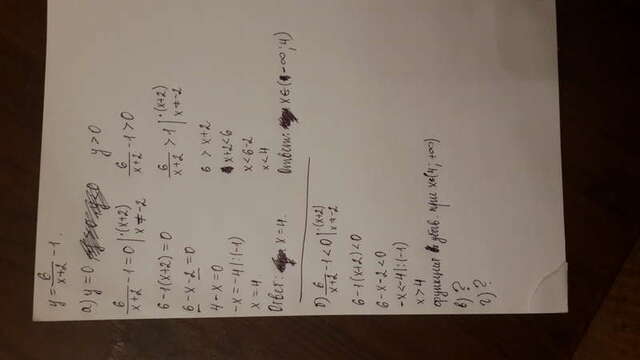 y = 6/(x+2) - 1.
а) y = 0
y > 0
6/(x+2) - 1 = 0 | ·(x+2) x ≠ -2
6 - 1(x+2) = 0
6 - x - 2 = 0
4 - x = 0
-x = -4 |:(-1)
x = 4.
Ответ: x = 4.
6/(x+2) - 1 > 0
6/(x+2) > 1 | ·(x+2) x ≠ -2
6 > x+2
x+2 < 6
x < 6-2
x < 4
Ответ: x ∈ (-∞; 4)
б) 6/(x+2) - 1 < 0 | ·(x+2) x ≠ -2
6 - 1(x+2) < 0
6 - x - 2 < 0
-x < -4 |:(-1)
x > 4
функция убыв. при x∈(4; +∞)
в) ?
г) ?